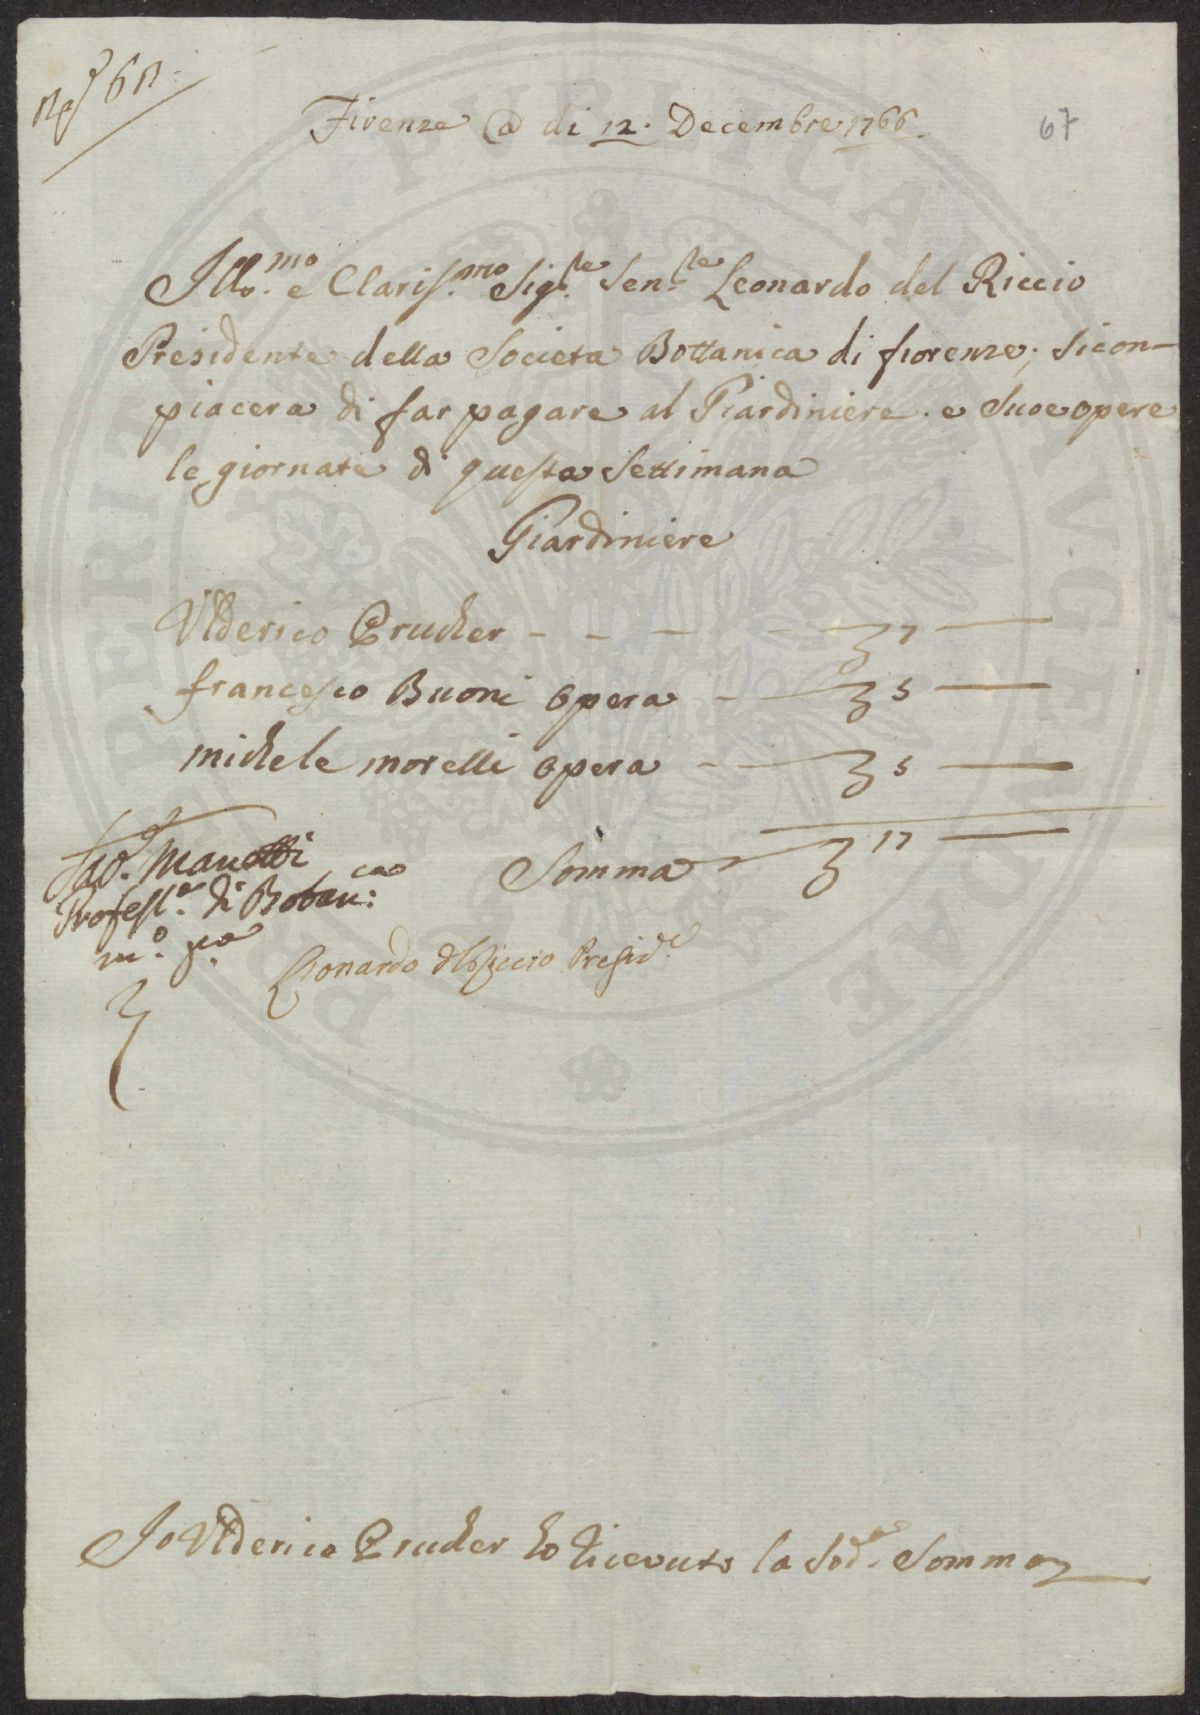 67
Firenze @ di 12. Decembre 1766
Illo.mo e Claris.mo Sig.re Sen.re Leonardo del Riccio
Presidente della Societa Bottanica di fiorenze; si con-
piacera di far pagare al Giardiniere. e Sue opere
le giornate di questa Settimana
Giardiniere
Ulderico Prucher - - - - 7 —
francesco Buoni opera - 5 —
michele morelli opera - - 5 —
Somma 17 —
Sav. Manetti
Profess.e di Botan.ca
m.o p.a
Lionardo del Riccio Presid.e
Io Ulderico Prucher ho ricevuto la Sod.a Somma
PRAEMIVM